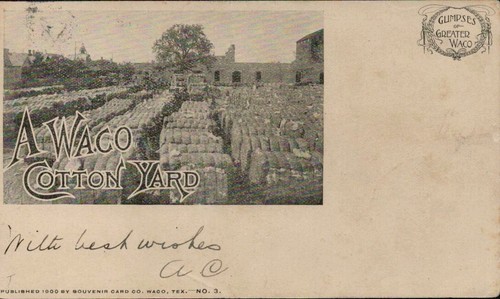 GLIMPSES
OF
GREATER
WACO
A WACO
COTTON YARD
With best wishes
A C
PUBLISHED 1900 BY SOUVENIR CARD CO. WACO, TEX. — NO. 3.